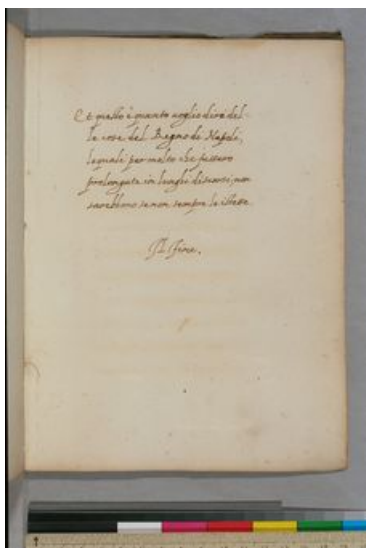 Et questo è quanto voglio dire del-
le cose del Regno di Napoli,
lequali per molto che fussero
prolongate in lunghi discorsi, non
sarebbono se non sempre le istesse.
Il fine.